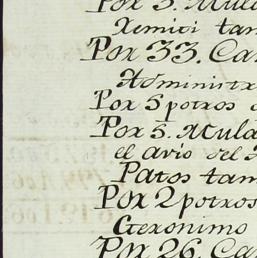 Por 5. Mula
Xemiti tam
Por 33. Ca
Administr
Por 5 potros
Por 5. Mula
el avio del
Patos tam
Por 2 potros
Geronimo
Por 26. Ca